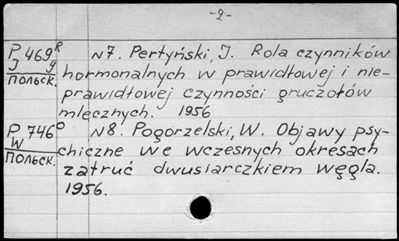 -2-
P 469R N7. Pertyński, J. Rola czynników
J 9 hormonalnych w prawidłowej i nie-
польск. prawidłowej czynności gruczołów
mlęcznych. 1956
P 746° N8. Pogorzelski, W. Objawy psy-
W chiczne we wczesnych okresach
польск. zatruć dwusiarczkiem węgla.
1956.